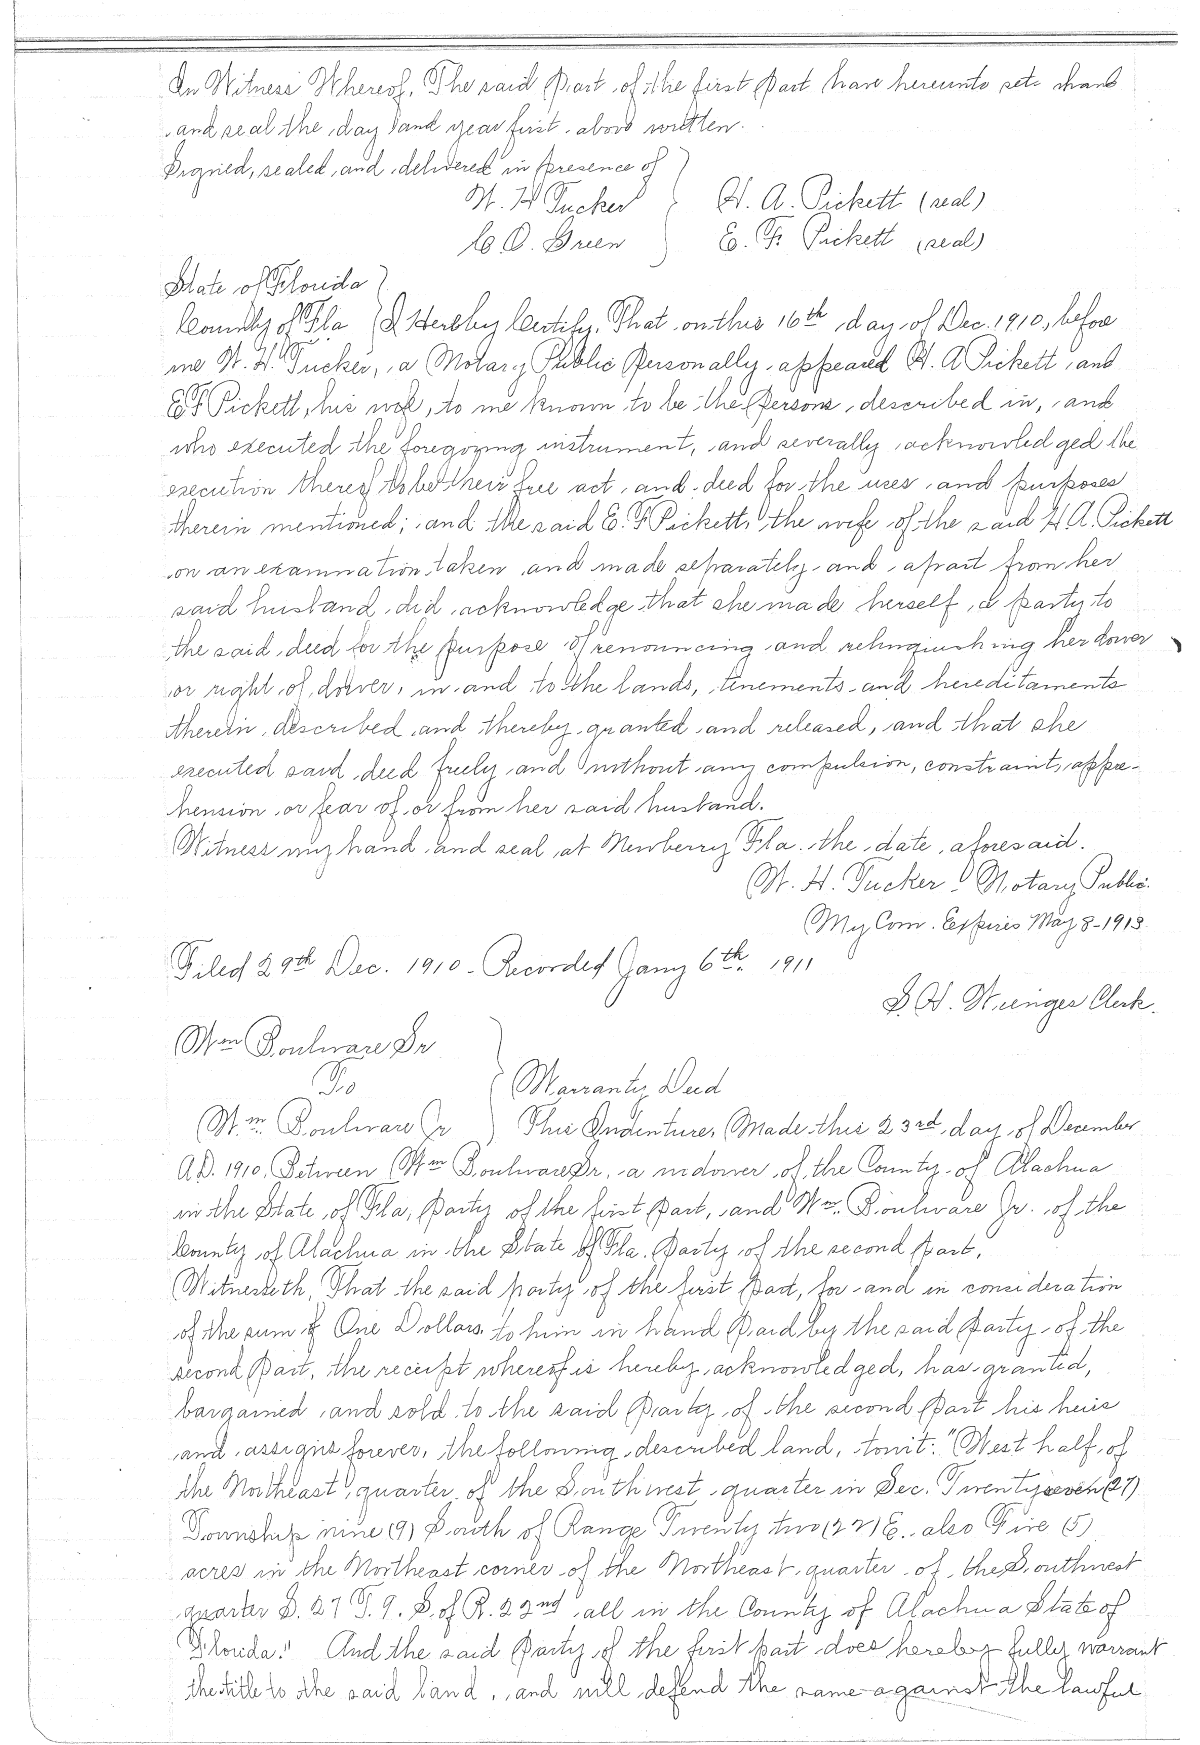 In Witness Whereof, The said Part of the first Part have hereunto set hand
and seal the day and year first above written.
Signed, sealed and delivered in presence of
W. H Tucker H. A. Pickett (seal)
C O. Green E. F. Pickett (seal)
State of Florida
County of Fla I Hereby Certify, That on this 16th day of Dec. 1910, before
me W. H. Tucker, a Notary Public Personally appeared H. A Pickett and
E F Pickett, his wife, to me known to be the Persons described in, and
who executed the foregoing instrument, and severally acknowledged the
execution thereof to be their free act and deed for the uses and purposes
therein mentioned; and the said E. F Pickett, the wife of the said H A. Pickett
on an examnation taken and made separately and apart from her
said husband did acknowledge that she made herself a party to
the said deed for the purpose of renouncing and relinqiushing her dower
or right of dower, in and to the lands, tenements and hereditaments
therein described and thereby granted and released, and that she
executed said deed freely and without any compulsion, constraint, appre-
hension or fear of or from her said husband.
Witness my hand and seal at Newberry Fla. the date aforesaid.
W. H. Tucker Notary Public.
My Com. Expires May 8-1913
Filed 29th Dec. 1910. Recorded Jany 6th. 1911
S. H. Wienges Clerk.
Wm Boulware Sr
To Warranty Deed
Wm. Boulware Jr This Indenture, Made this 23rd day of December
A.D. 1910, Between Wm Boulware Sr. a widower of the County of Alachua
in the State of Fla, Party of the first Part, and Wm. Boulware Jr. of the
County of Alachua in the State of Fla. Party of the second Part,
Witnesseth, That the said party of the first Part, for and in consideration
of the sum of One Dollars to him in hand Paid by the said Party of the
second Part, the receipt whereof is hereby acknowledged, has granted,
bargained and sold to the said Party of the second Part his heirs
and assigns forever, the following described land, towit: "West half of
the Northeast quarter of the Southwest quarter in Sec. Twenty seven (27)
Township nine (9) South of Range Twenty two (22) E. also Five (5)
acres in the Northeast corner of the Northeast quarter of the Southwest
quarter S. 27 T. 9. S. of R. 22nd all in the County of Alachua State of
Florida." And the said Party of the first part does hereby fully warrant
the title to the said land, and will defend the same against the lawful